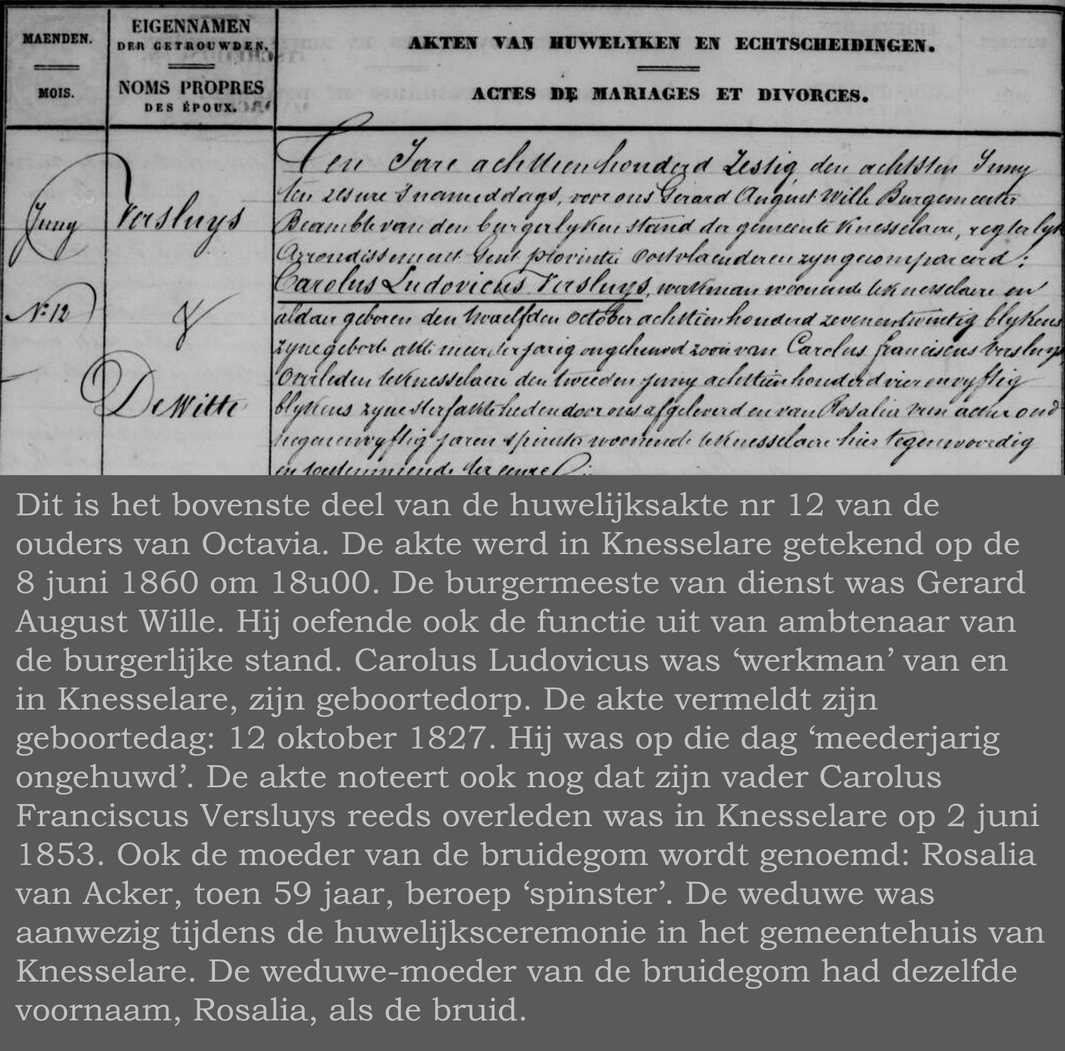 MAENDEN.
MOIS.
EIGENNAMEN
DER GETROUWDEN.
NOMS PROPRES
DES ÉPOUX.
AKTEN VAN HUWELYKEN EN ECHTSCHEIDINGEN.
ACTES DE MARIAGES ET DIVORCES.
Juny
N.º 12
Versluys
&
De Witte
Ten Jare achttien honderd Zestig, den achtsten Juny
ten zes ure s'namiddags, voor ons Gerard August Wille Burgemeester
Beambte van den burgerlyken stand der gemeente Knesselaere, regterlyk
Arrondissement Gent provintie Oostvlaenderen zyn gecompareerd:
Carolus Ludovicus Versluys, werkman woonende te Knesselaere en
aldaer geboren den twaelfden October achttien honderd zevenentwintig blykens
zyne geborte akte meerderjarig ongehuwd zoon van Carolus franciscus Versluys
Overleden te Knesselaere den tweeden Juny achttien honderd vierenvyftig
blykens zyne sterfakte heden door ons afgeleverd en van Rosalia van acker oud
negenenvyftig jaren spinster woonende te Knesselaere hier tegenwoordig
en toestemmende ter eenre
Dit is het bovenste deel van de huwelijksakte nr 12 van de
ouders van Octavia. De akte werd in Knesselare getekend op de
8 juni 1860 om 18u00. De burgermeeste van dienst was Gerard
August Wille. Hij oefende ook de functie uit van ambtenaar van
de burgerlijke stand. Carolus Ludovicus was ‘werkman’ van en
in Knesselare, zijn geboortedorp. De akte vermeldt zijn
geboortedag: 12 oktober 1827. Hij was op die dag ‘meederjarig
ongehuwd’. De akte noteert ook nog dat zijn vader Carolus
Franciscus Versluys reeds overleden was in Knesselare op 2 juni
1853. Ook de moeder van de bruidegom wordt genoemd: Rosalia
van Acker, toen 59 jaar, beroep ‘spinster’. De weduwe was
aanwezig tijdens de huwelijksceremonie in het gemeentehuis van
Knesselare. De weduwe-moeder van de bruidegom had dezelfde
voornaam, Rosalia, als de bruid.